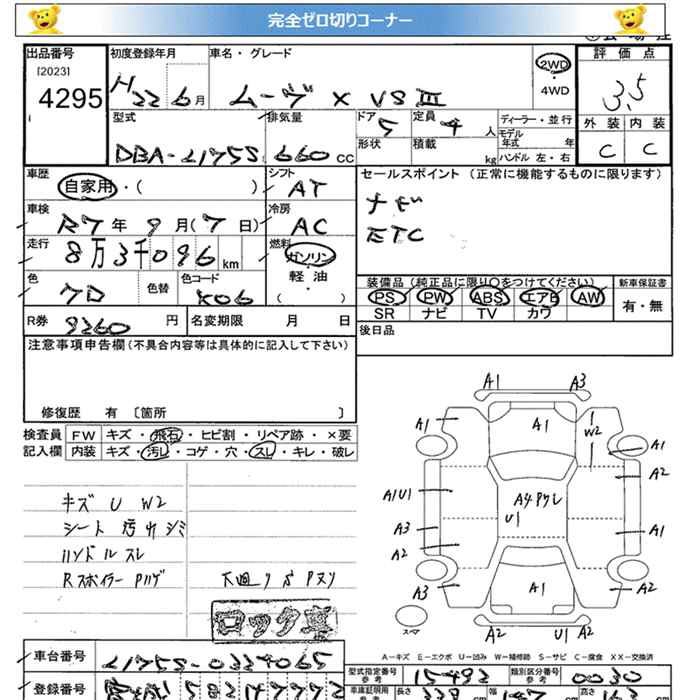 完全ゼロ切りコーナー
出品番号 初度登録年月 車名・グレード 評価点
[2023] 4295 H22 6月 ムーヴ X VSⅢ 2WD ・ 4WD 3.5
型式 排気量 ドア 定員 ディーラー・並行 外装 内装
DBA-L175S 660 CC 5 4人 モデル年式 年 C C
形状 積載 kg ハンドル 左・右
車歴 シフト セールスポイント (正常に機能するものに限ります)
自家用・( ) AT ナビ
車検 冷房
R7年 9月(7日) AC ETC
走行 燃料
8万3千096km ガソリン
軽・油
( )
色 色替 色コード 装備品 (純正品に限り〇をつけてください) 新車保証書
K06 PS PW ABS エアB AW 有・無
SR ナビ TV カワ
R券 9260円 名変期限 月 日 後日品
注意事項申告欄(不具合内容等は具体的に記入して下さい)
修復歴 有 〔箇所 〕
検査員 FW キズ・飛石・ヒビ割・リペア跡・×要
記入欄 内装 キズ・汚レ・コゲ・穴・スレ・キレ・破レ
キズ U W2
シート 汚れ シミ
ハンドル スレ
Rスポイラー Pハゲ
下廻り サ Pヌリ
ロック車
A1 A3
A1 A1 W2 A1
A2
A1U1 A4 Pクレ
U1
A3 A1
A2
A3 A1 A2
スペア A2 U1 A2
A-キズ E-エクボ U-凹み W-補修跡 S-サビ C-腐食 XX-交換済
車台番号 L175S-0324065
型式指定番号 15492 類別区分番号 0030
登録番号
車庫証明用 長さ